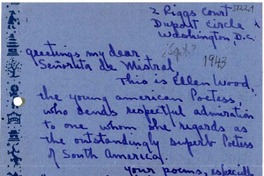 2 Riggs Court
Dupont Circle
Washington, D.C.
1943
Greetings my dear
Señorita de Mistral
This is Ellen Wood,
the young american Poetess,
who sends respectful admiration
to one whom she regards as
the outstandingly superb Poetess
of South America.
Your poems, especially